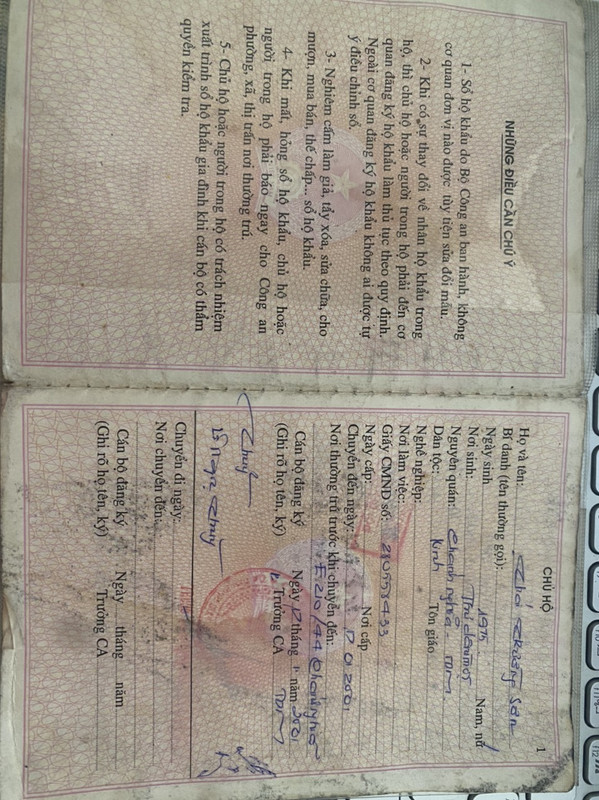 NHỮNG ĐIỀU CẦN CHÚ Ý
1- Sổ hộ khẩu do Bộ Công an ban hành, không
cơ quan đơn vị nào được tùy tiện sửa đổi mẫu.
2- Khi có sự thay đổi về nhân hộ khẩu trong
hộ, thì chủ hộ hoặc người trong hộ phải đến cơ
quan đăng ký hộ khẩu làm thủ tục theo quy định.
Ngoài cơ quan đăng ký hộ khẩu không ai được tự
ý điều chỉnh sổ.
3- Nghiêm cấm làm giả, tẩy xóa, sửa chữa, cho
mượn, mua bán, thế chấp... sổ hộ khẩu.
4- Khi mất, hỏng sổ hộ khẩu, chủ hộ hoặc
người trong hộ phải báo ngay cho Công an
phường, xã, thị trấn nơi thường trú.
5- Chủ hộ hoặc người trong hộ có trách nhiệm
xuất trình sổ hộ khẩu gia đình khi cán bộ có thẩm
quyền kiểm tra.
1
CHỦ HỘ
Họ và tên: Trường Sơn
Bí danh (tên thường gọi):
Ngày sinh 1975 Nam, nữ
Nơi sinh: Thủ dầu một
Nguyên quán: Chánh nghĩa - TDM
Dân tộc: Kinh Tôn giáo
Nghề nghiệp:
Nơi làm việc:
Giấy CMND số:
Ngày cấp: Nơi cấp
Chuyển đến ngày:
Nơi thường trú trước khi chuyển đến:
Chánh nghĩa
TDM
Cán bộ đăng ký Ngày 17 tháng 11 năm 2001
(Ghi rõ họ, tên, ký) Trưởng CA
Thuỷ
Thuỷ
Chuyển đi ngày:
Nơi chuyển đến:
Cán bộ đăng ký Ngày tháng năm
(Ghi rõ họ, tên, ký) Trưởng CA